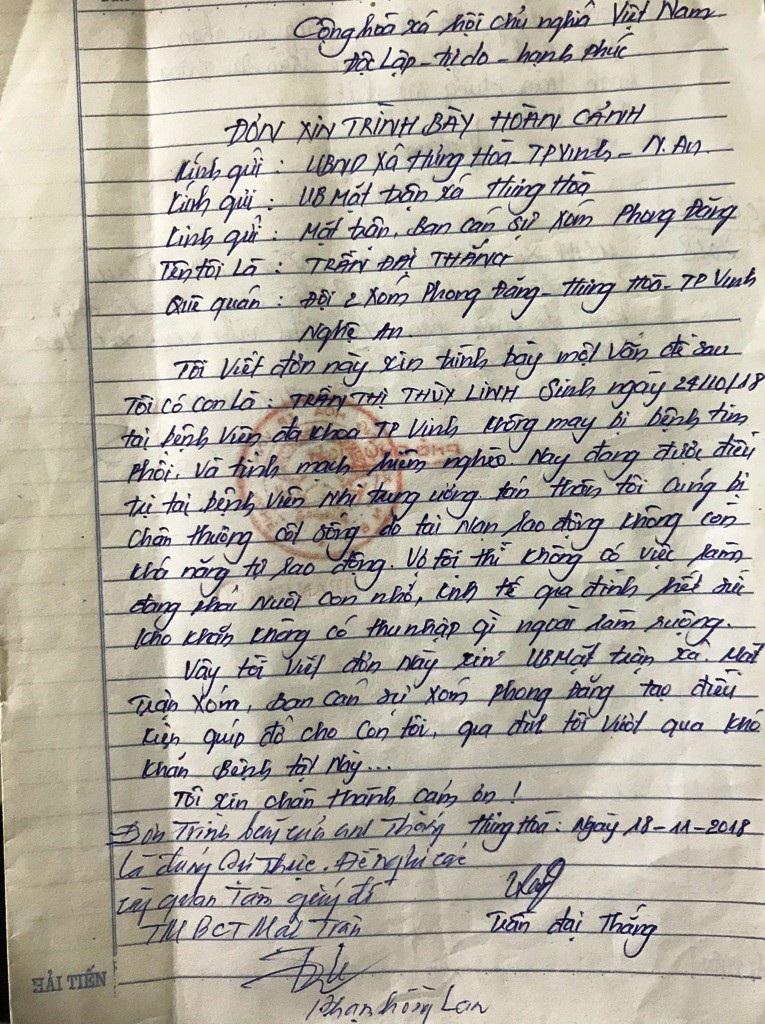 Cộng hoà xã hội chủ nghĩa Việt Nam
Độc Lập - tự do - hạnh phúc
ĐƠN XIN TRÌNH BÀY HOÀN CẢNH
Kính gửi : UBND Xã Hưng Hoà TP Vinh - N.An
Kính gửi : UB Mặt trận xã Hưng Hoà
Kính gửi : Mặt trận, Ban cán sự xóm Phong Đăng
Tên tôi Là : TRẦN ĐẠI THẮNG
Quê quán : Đội 2 xóm Phong Đăng - Hưng Hoà - TP Vinh
Nghệ An
Tôi viết đơn này xin trình bày một vấn đề sau
Tôi có con Là : TRẦN THỊ THÙY LINH Sinh ngày 24/10/18
tại bệnh viện đa khoa TP Vinh không may bị bệnh tim
phổi, và tĩnh mạch hiểm nghèo. Nay đang được điều
trị tại bệnh viện Nhi trung ương. bản thân tôi cũng bị
chấn thương cột sống do tai nạn Lao động không còn
khả năng tự Lao động. Vợ tôi thì không có việc làm
đang phải nuôi con nhỏ, kinh tế gia đình hết sức
khó khăn không có thu nhập gì ngoài làm ruộng.
Vậy tôi viết đơn này xin UB Mặt trận xã. Mặt
Trận xóm, Ban cán sự xóm Phong Đăng tạo điều
kiện giúp đỡ cho con tôi, gia đình tôi vượt qua khó
khăn Bệnh tật này...
Tôi xin chân thành cảm ơn !
Đơn Trình bày của anh Thắng Hưng Hoà : Ngày 18-11-2018
Là đúng sự thực. Đề nghị các
quan Tâm giúp đỡ
TM BCT Mặt Trận Trần đại Thắng
Phan hồng Lan
HẢI TIẾN